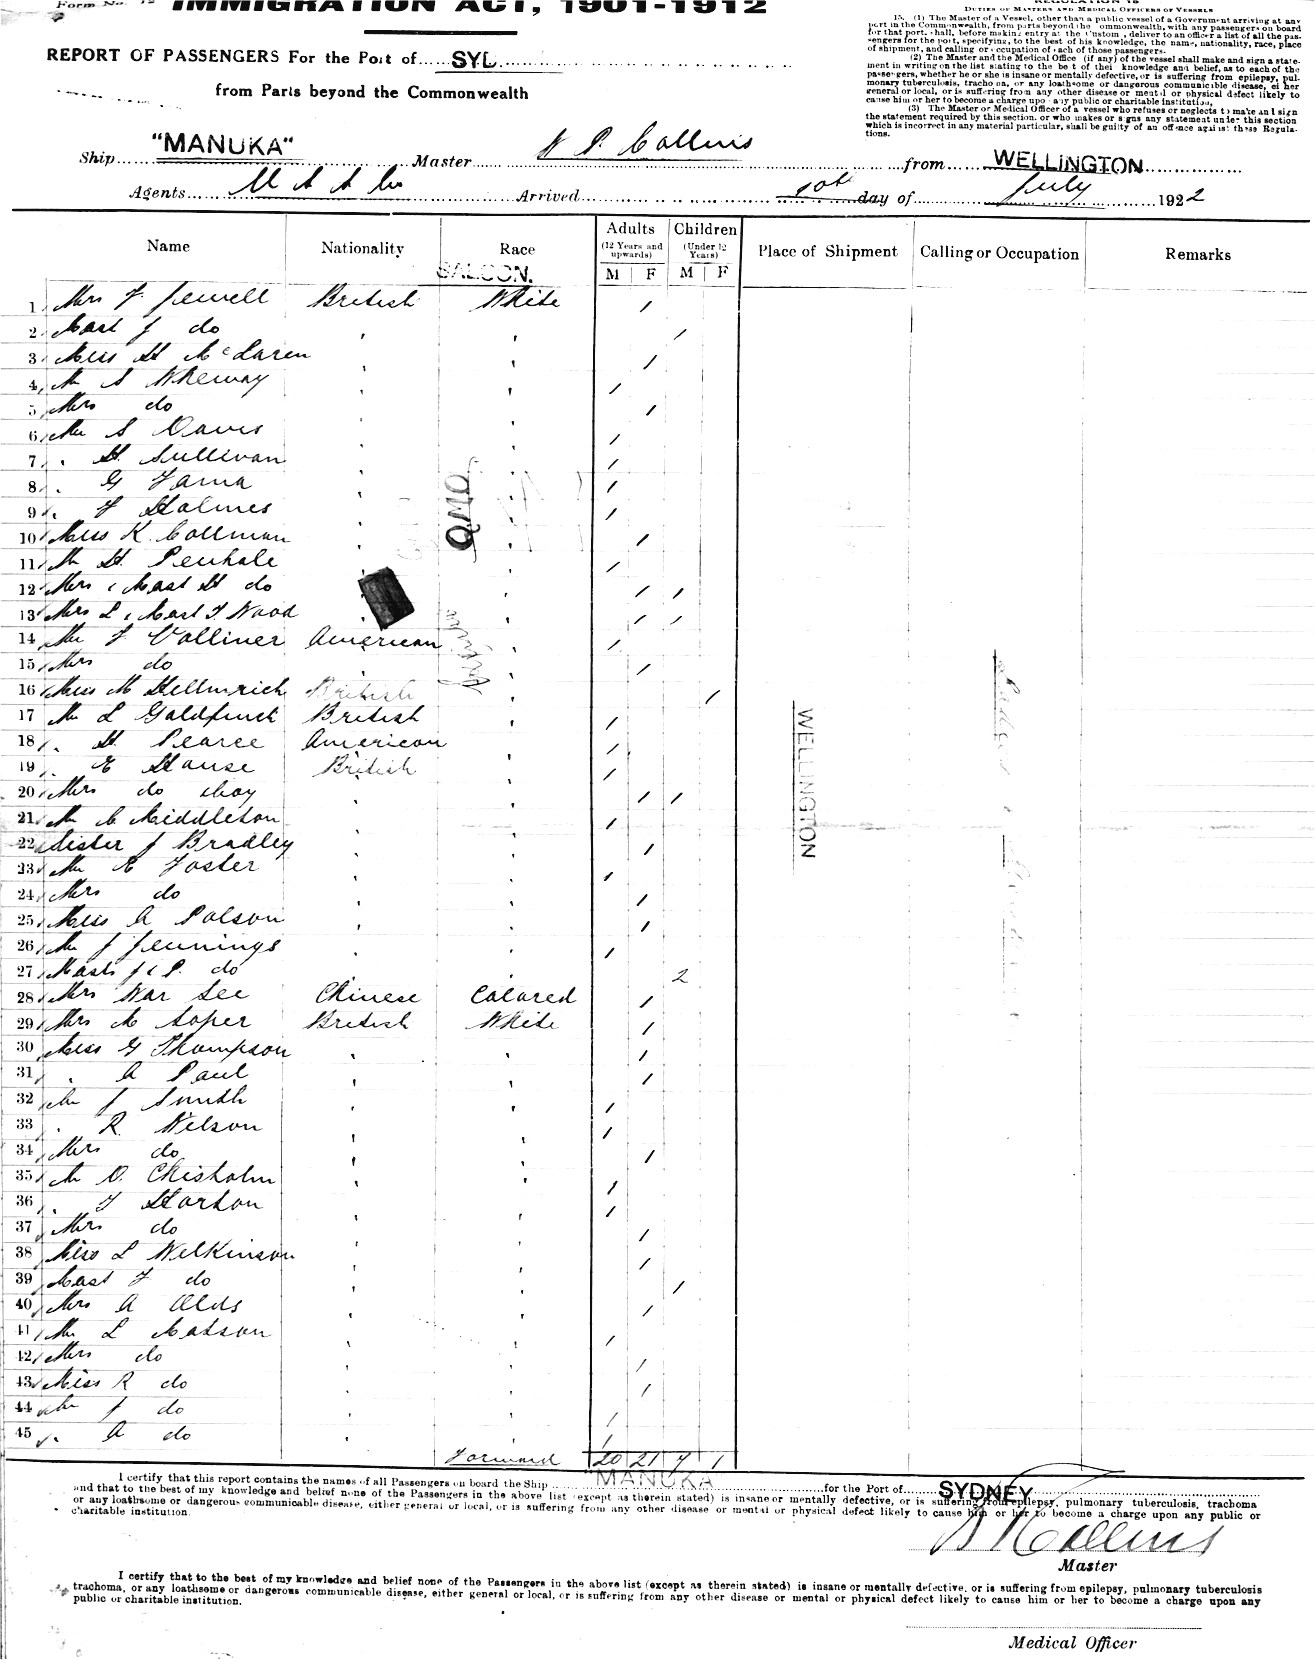 Form No. 12
IMMIGRATION ACT, 1901-1912
REGULATION 15
DUTIES OF MASTERS AND MEDICAL OFFICERS OF VESSELS
15. (1) The Master of a Vessel, other than a public vessel of a Government arriving at any
port in the Commonwealth, from parts beyond the Commonwealth, with any passengers on board
for that port, shall, before making entry at the Custom, deliver to an officer a list of all the pas-
sengers for the port, specifying, to the best of his knowledge, the name, nationality, race, place
of shipment, and calling or occupation of each of those passengers.
(2) The Master and the Medical Office (if any) of the vessel shall make and sign a state-
ment in writing on the list stating to the best of their knowledge and belief, as to each of the
passengers, whether he or she is insane or mentally defective, or is suffering from epilepsy, pul-
monary tuberculosis, trachoma, or any loathsome or dangerous communicable disease, either
general or local, or is suffering from any other disease or mental or physical defect likely to
cause him or her to become a charge upon any public or charitable institution.
(3) The Master or Medical Officer of a vessel who refuses or neglects to make and sign
the statement required by this section, or who makes or signs any statement under this section
which is incorrect in any material particular, shall be guilty of an offence against these Regula-
tions.
REPORT OF PASSENGERS For the Port of SYD
from Parts beyond the Commonwealth
Ship "MANUKA" Master Collins from WELLINGTON
Agents Arrived 10th day of July 1922
Name Nationality Race Adults (12 Years and upwards) M F Children (Under 12 Years) M F Place of Shipment Calling or Occupation Remarks
SALOON.
1 Mrs F Jewell British White /
2 Mast J do ' ' /
3 Miss H McLaren ' ' /
4 Mr S Wheway ' ' /
5 Mrs do ' ' /
6 Mr S Davis ' ' /
7 " H Sullivan ' ' /
8 " G Fama ' ' /
9 " F Holmes ' ' /
10 Miss K Collman ' ' /
11 Mr H Penhale ' ' /
12 Mrs & Mast H do ' ' / /
13 Mrs L & Mast F Wood ' ' / /
14 Mr F Volliner American ' /
15 Mrs do ' /
16 Miss M Hellmrich British ' /
17 Mr L Goldfinch British ' /
18 " H Pearce American ' /
19 " E House British ' /
20 Mrs do & boy ' ' / /
21 Mr C Middleton ' ' /
22 Sister J Bradley ' ' /
23 Mr E Foster ' ' /
24 Mrs do ' ' /
25 Miss A Polson ' ' /
26 Mr J Jennings ' ' /
27 Masts J & P. do ' ' 2
28 Mrs War See Chinese Colored /
29 Mrs M Soper British White /
30 Miss G Thompson ' ' /
31 " A Paul ' ' /
32 Mr J Smith ' ' /
33 " R Wilson ' ' /
34 Mrs do ' ' /
35 Mr D. Chisholm ' ' /
36 " F Horton ' ' /
37 Mrs do ' ' /
38 Miss L Wilkinson ' ' /
39 Mast F do ' ' /
40 Mrs A Olds ' ' /
41 Mr L Matson ' ' /
42 Mrs do ' ' /
43 Miss R do ' ' /
44 Mr J do ' ' /
45 " A do ' ' /
WELLINGTON
Forward 20 21 7 1
I certify that this report contains the names of all Passengers on board the Ship MANUKA for the Port of SYDNEY
and that to the best of my knowledge and belief none of the Passengers in the above list (except as therein stated) is insane or mentally defective, or is suffering from epilepsy, pulmonary tuberculosis, trachoma
or any loathsome or dangerous communicable disease, either general or local, or is suffering from any other disease or mental or physical defect likely to cause him or her to become a charge upon any public or
charitable institution.
Collins
Master
I certify that to the best of my knowledge and belief none of the Passengers in the above list (except as therein stated) is insane or mentally defective, or is suffering from epilepsy, pulmonary tuberculosis
trachoma, or any loathsome or dangerous communicable disease, either general or local, or is suffering from any other disease or mental or physical defect likely to cause him or her to become a charge upon any
public or charitable institution.
Medical Officer